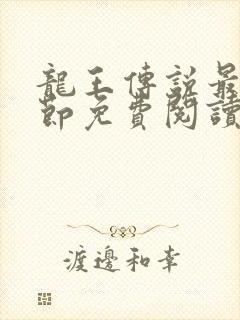 龍王傳說最
節免費閱讀
渡邊和幸